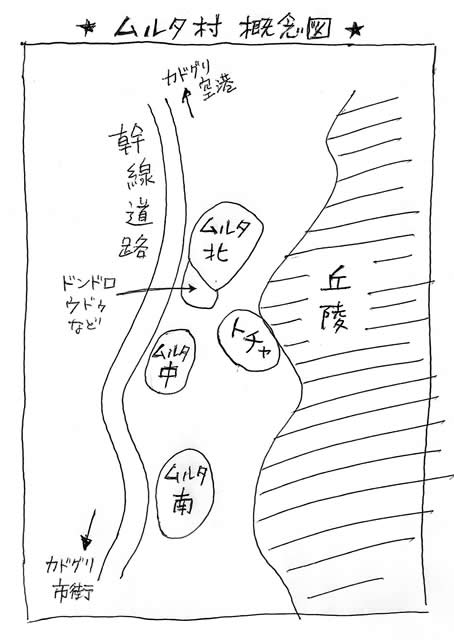 ★ ムルタ村 概念図 ★
カドグリ
空港
幹
線
道
路
ムルタ
北
ドンドロ
ウドゥ
など
丘
陵
トチャ
ムルタ
中
ムルタ
南
カドグリ
市街